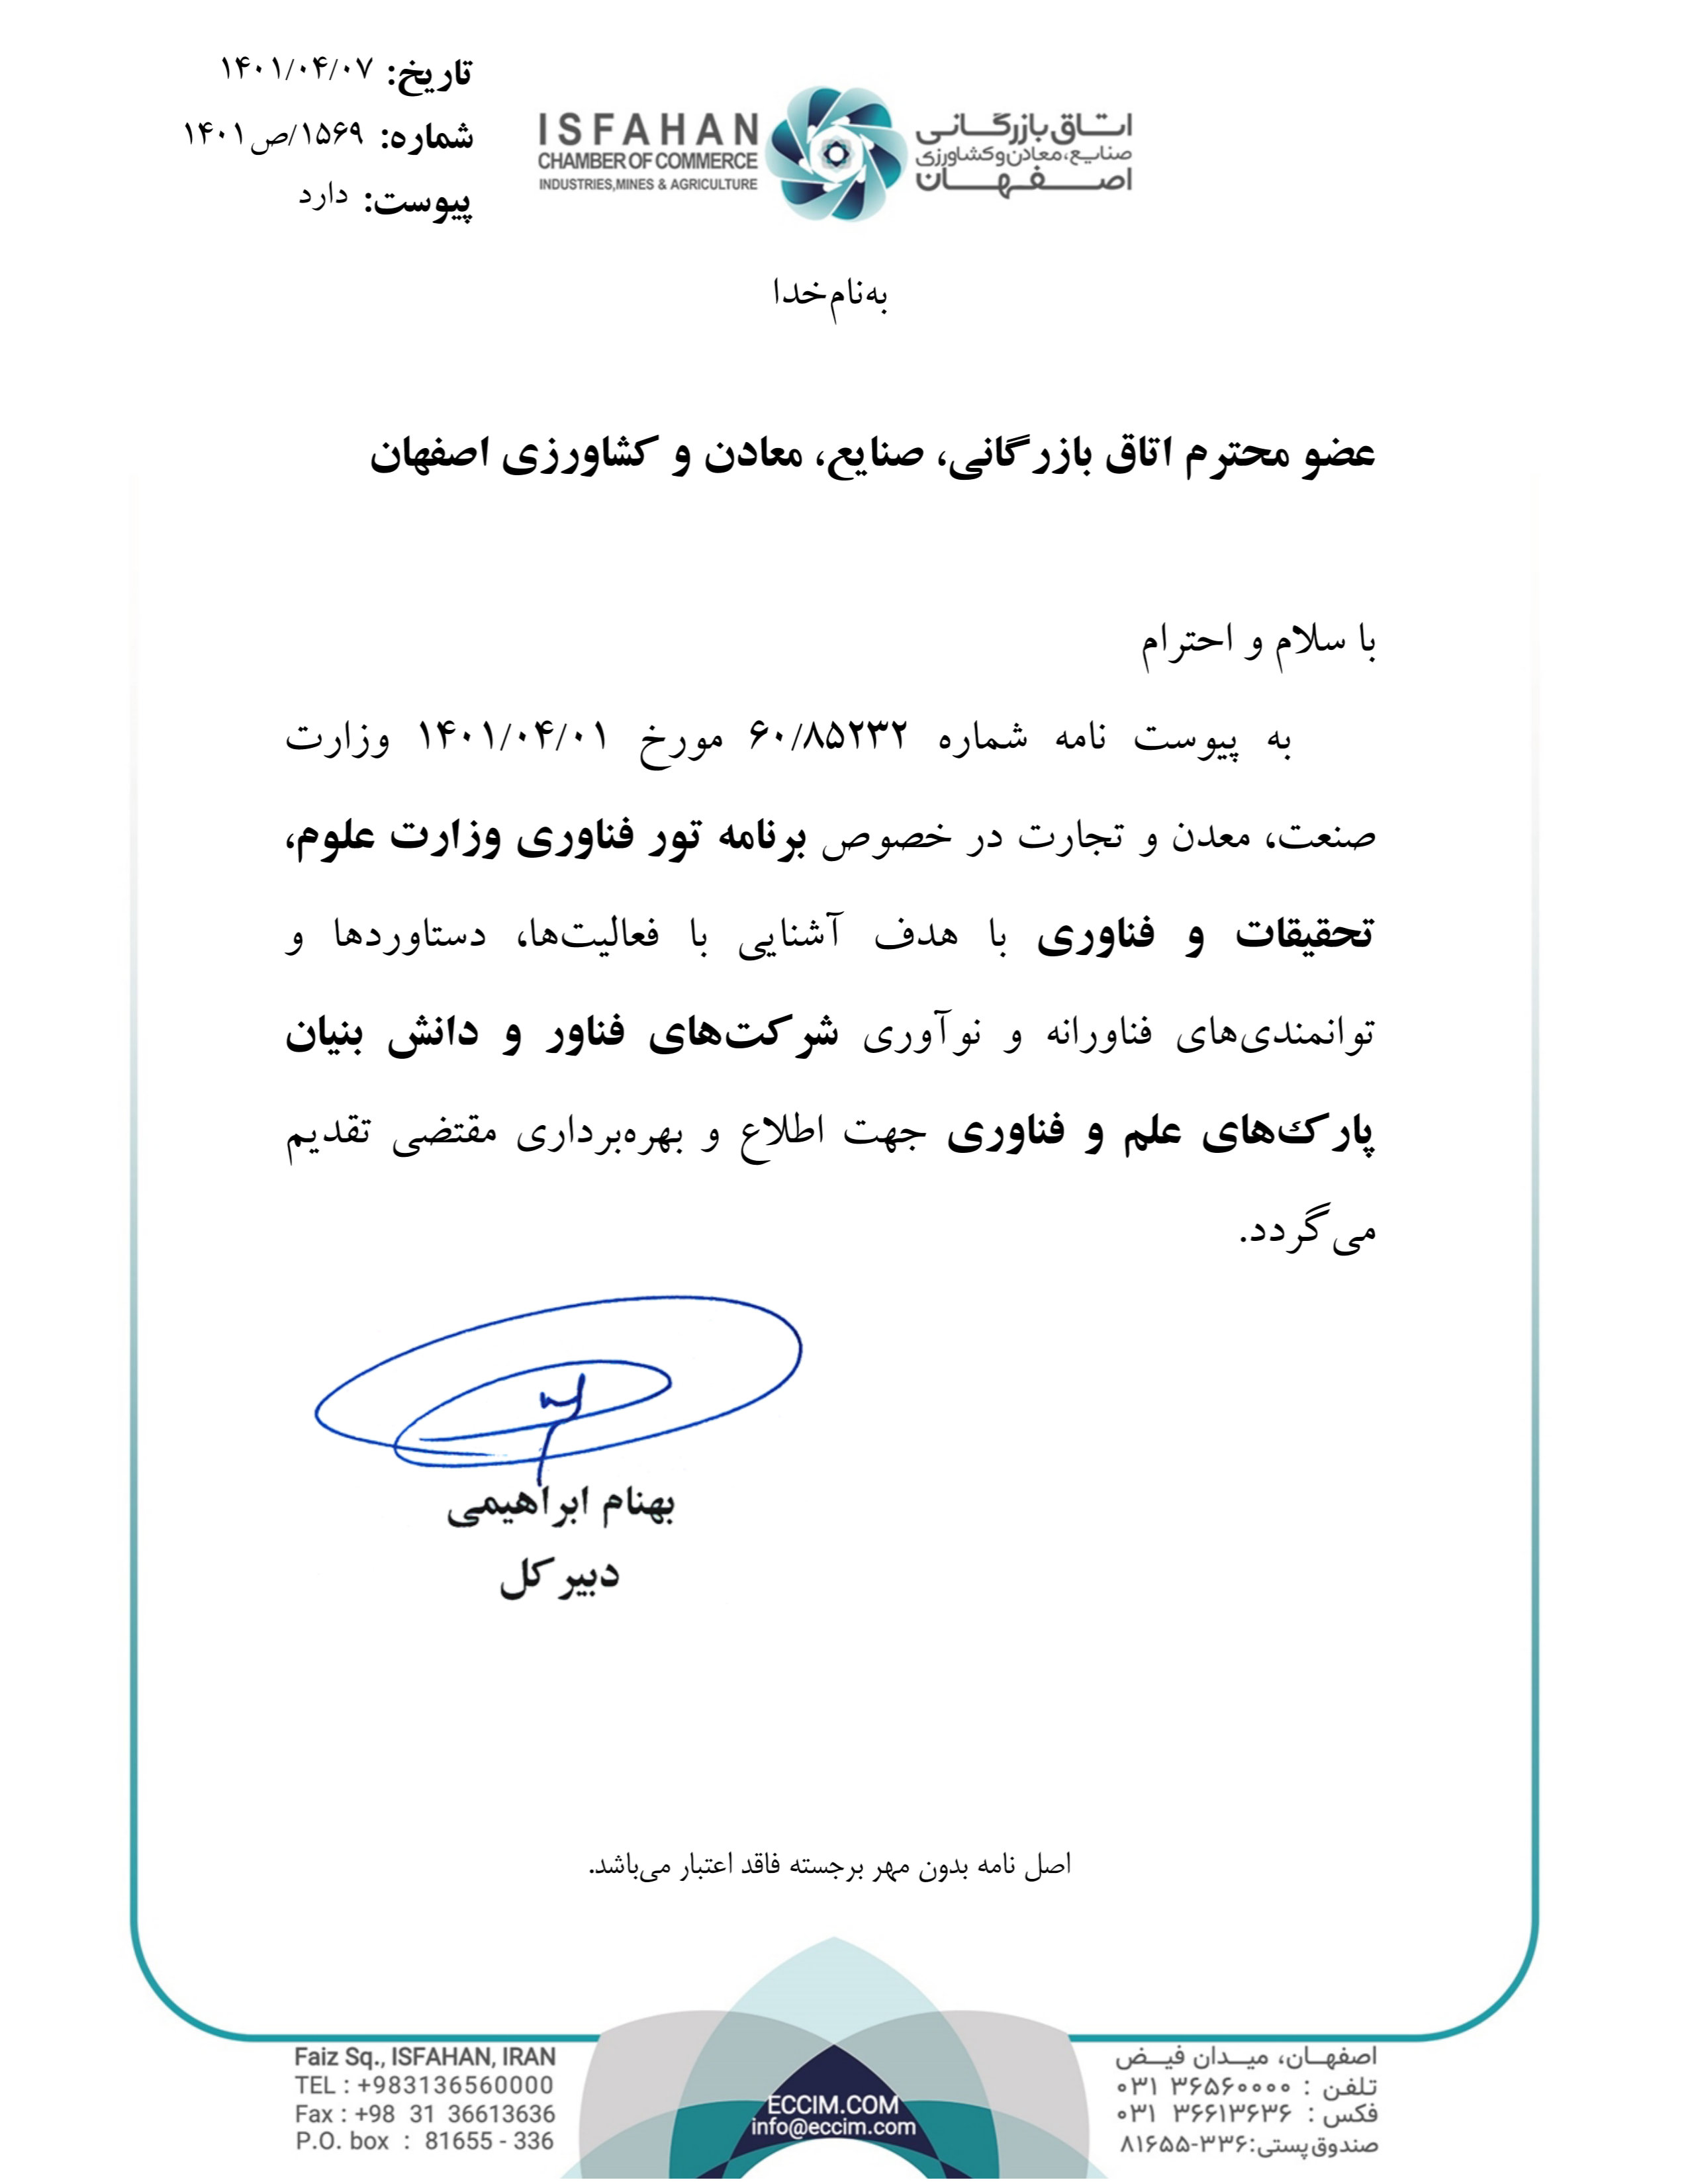 تاریخ: ۱۴۰۱/۰۴/۰۷
شماره: ۱۵۶۹/ص۱۴۰۱
پیوست: دارد
ISFAHAN
CHAMBER OF COMMERCE
INDUSTRIES,MINES & AGRICULTURE
اتــاق بازرگــانـی
صنایـع،معادن‌وکشاورزی
اصــفــهــان
به‌نام‌خدا
عضو محترم اتاق بازرگانی، صنایع، معادن و کشاورزی اصفهان
با سلام و احترام
به پیوست نامه شماره ۶۰/۸۵۲۳۲ مورخ ۱۴۰۱/۰۴/۰۱ وزارت
صنعت، معدن و تجارت در خصوص برنامه تور فناوری وزارت علوم،
تحقیقات و فناوری با هدف آشنایی با فعالیت‌ها، دستاوردها و
توانمندی‌های فناورانه و نوآوری شرکت‌های فناور و دانش بنیان
پارک‌های علم و فناوری جهت اطلاع و بهره‌برداری مقتضی تقدیم
می‌گردد.
بهنام ابراهیمی
دبیرکل
اصل نامه بدون مهر برجسته فاقد اعتبار می‌باشد.
Faiz Sq., ISFAHAN, IRAN
TEL : +983136560000
Fax : +98 31 36613636
P.O. box : 81655 - 336
ECCIM.COM
info@eccim.com
اصفهــان، میــدان فیــض
تـلفـن : ۳۶۵۶۰۰۰۰ ۰۳۱
فکس : ۳۶۶۱۳۶۳۶ ۰۳۱
صندوق‌پستی:۳۳۶-۸۱۶۵۵